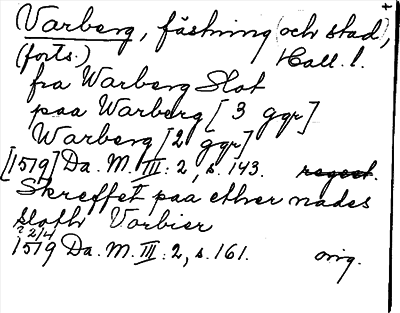 Varberg, fästning (och stad),
(forts.) Hall. l.
fra Warberg Slot
paa Warberg [3 ggr]
Warberg [2 ggr]
[1519] Da. M. III: 2, s. 143. regest.
Skreffet paa ether nades
sloth Vorbier
? 2/4
1519 Da. M. III: 2, s. 161. orig.